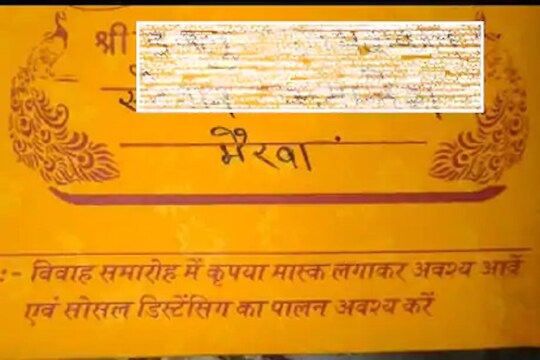 श्री
मैरवां
:- विवाह समारोह में कृपया मास्क लगाकर अवश्य आवें
एवं सोसल डिस्टेंसिग का पालन अवश्य करें